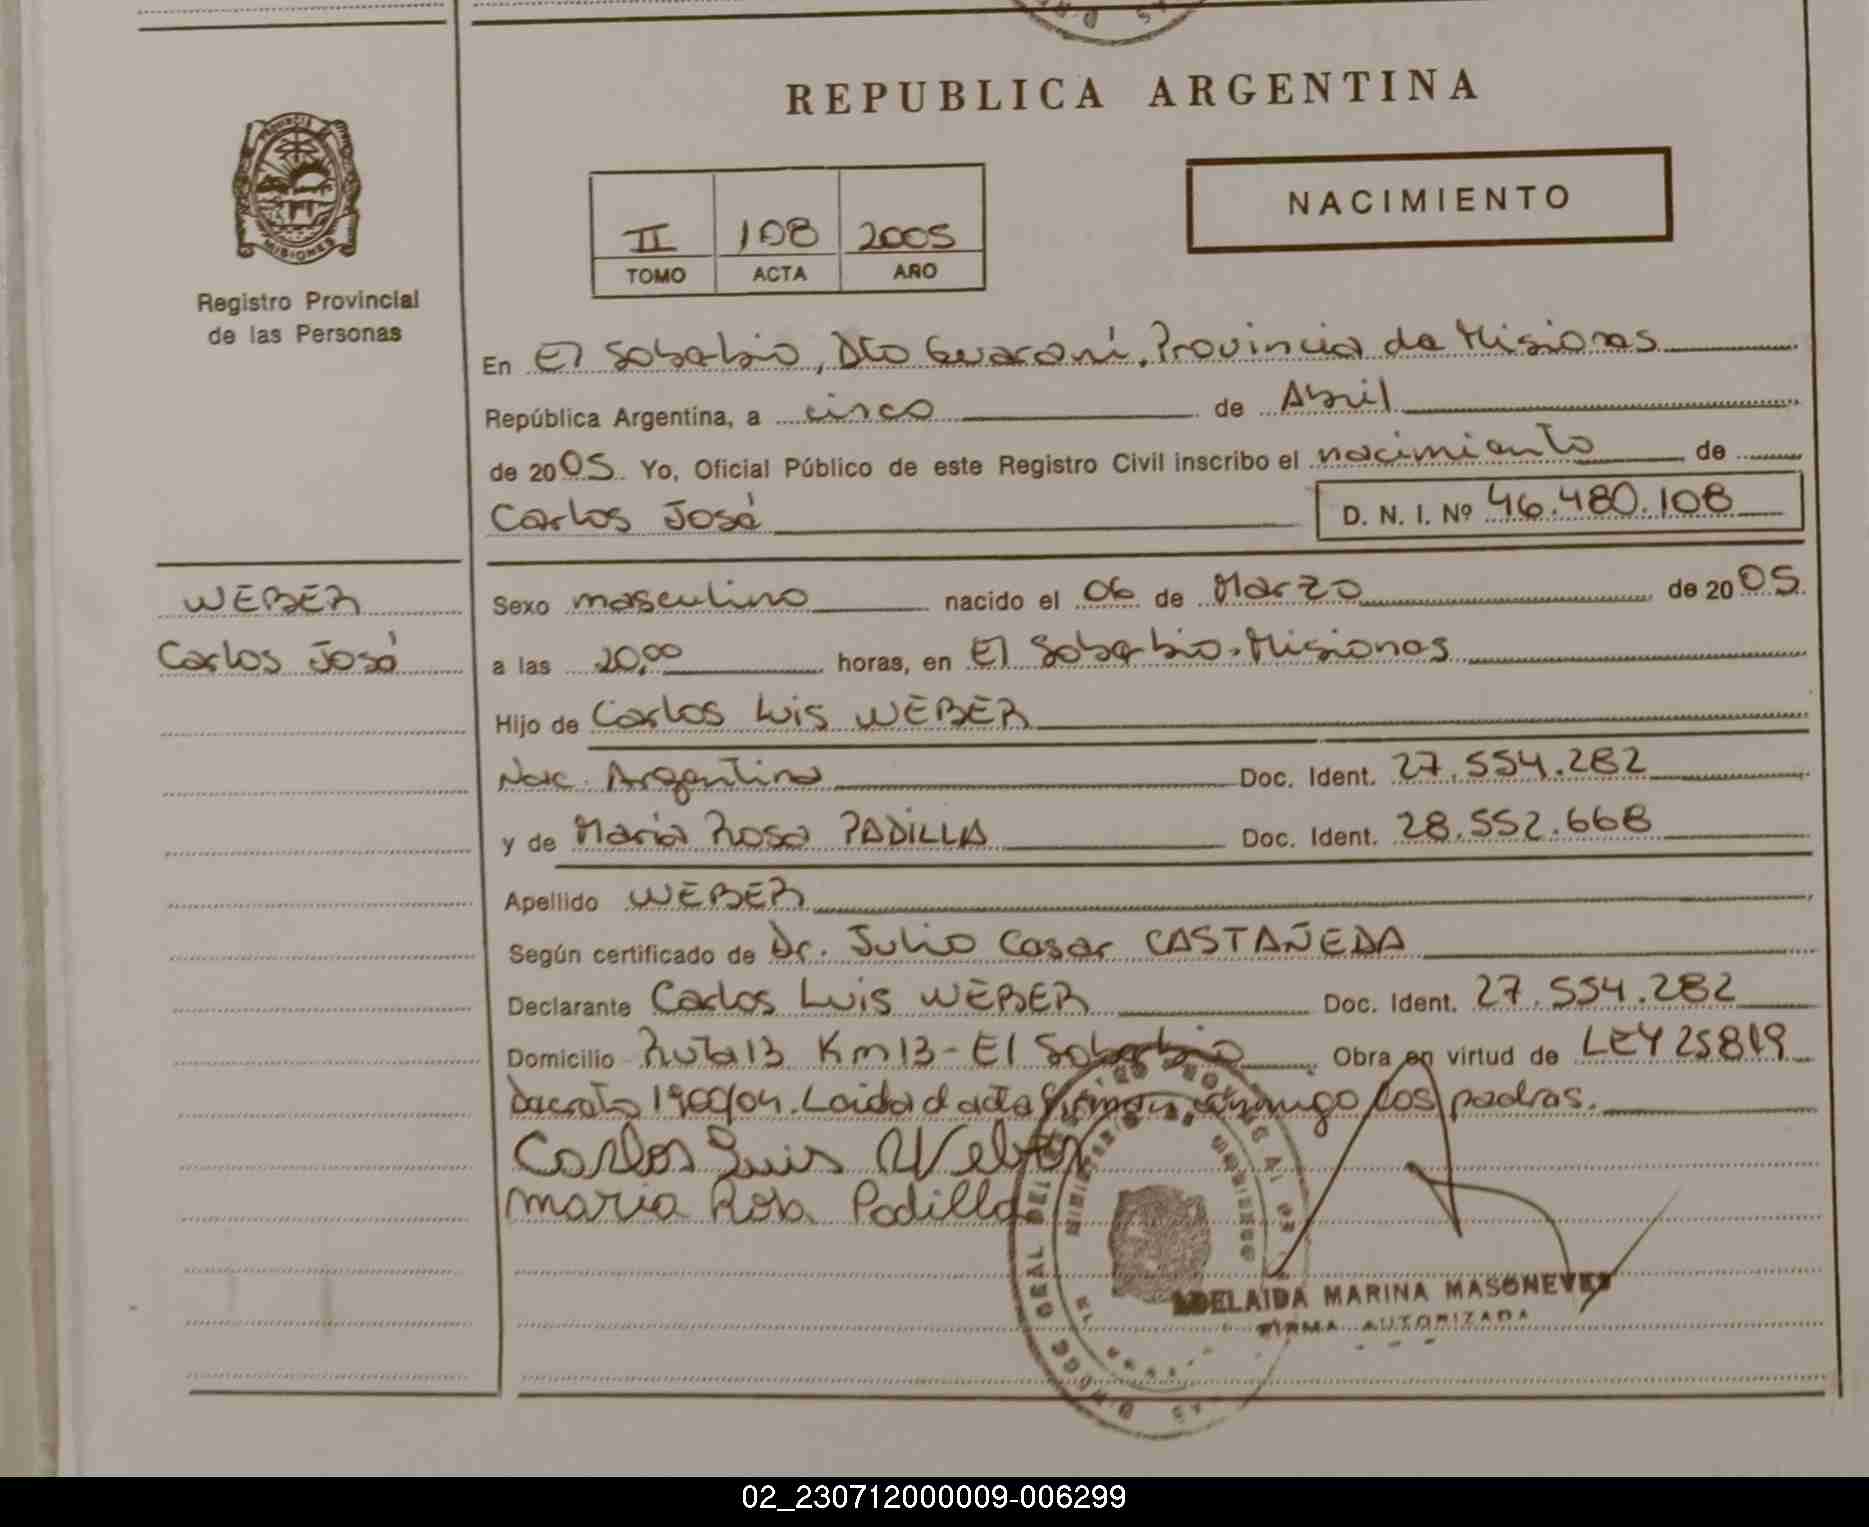 REPUBLICA ARGENTINA
PROVINCIA DE MISIONES
Registro Provincial
de las Personas
II 108 2005
TOMO ACTA AÑO
NACIMIENTO
En El Soberbio, Dto Guaraní, Provincia de Misiones
República Argentina, a cinco de Abril
de 2005. Yo, Oficial Público de este Registro Civil inscribo el nacimiento de
Carlos José D. N. I. Nº 46.480.108
WEBER
Carlos José
Sexo masculino nacido el 06 de Marzo de 2005.
a las 20,00 horas, en El Soberbio-Misiones
Hijo de Carlos Luis WEBER
Nac. Argentina Doc. Ident. 27.554.282
y de María Rosa PADILLA Doc. Ident. 28.552.668
Apellido WEBER
Según certificado de Dr. Julio Cesar CASTAÑEDA
Declarante Carlos Luis WEBER Doc. Ident. 27.554.282
Domicilio Ruta 13 Km 13-El Soberbio Obra en virtud de LEY 25819
Decreto 1900/04. Leida el acta firman conmigo los padres.
Carlos Luis Weber
Maria Rosa Padilla
ADELAIDA MARINA MASONEVES
FIRMA AUTORIZADA
02_230712000009-006299